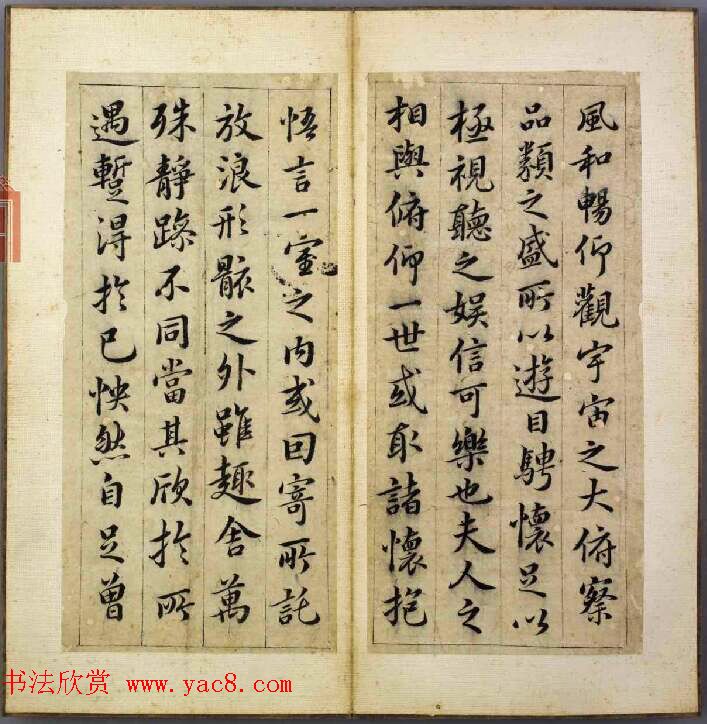 風和暢仰觀宇宙之大俯察
品類之盛所以遊目騁懷足以
極視聽之娱信可樂也夫人之
相與俯仰一世或取諸懷抱
悟言一室之内或因寄所託
放浪形骸之外雖趣舍萬
殊靜躁不同當其欣於所
遇蹔得於己怏然自足曾
书法欣赏 www.yac8.com